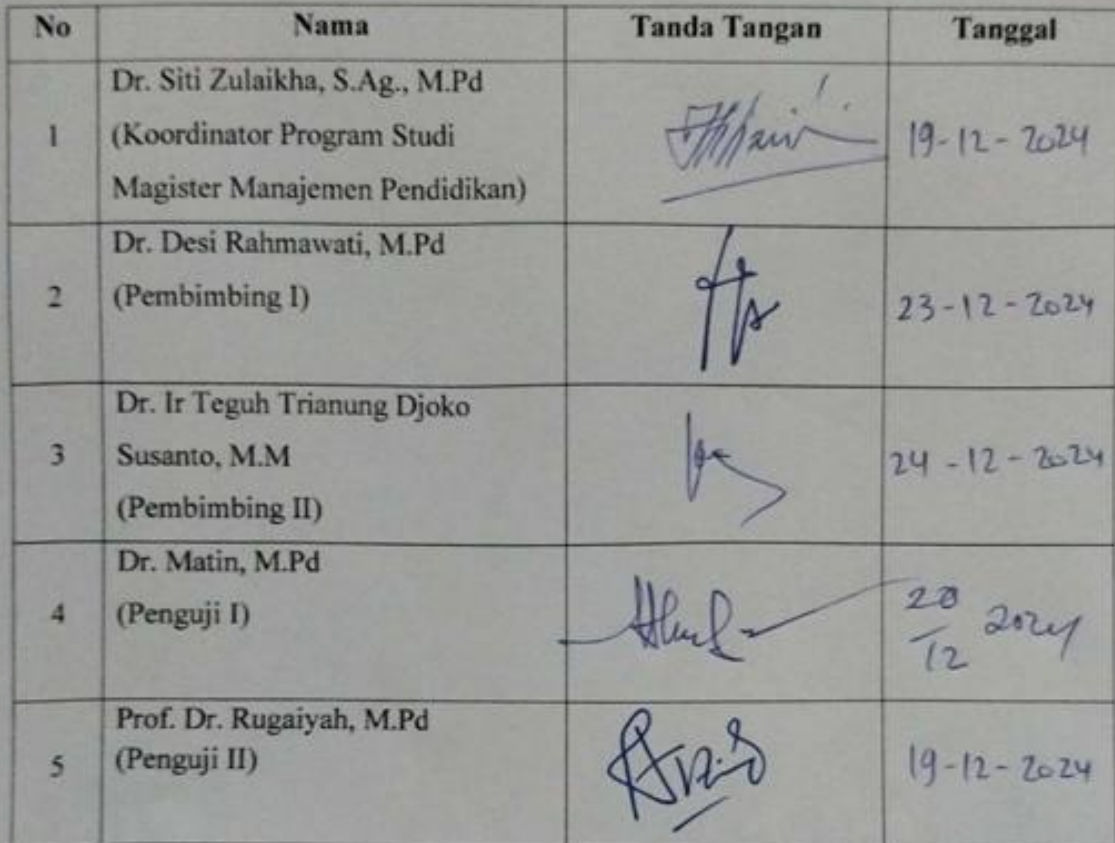 No Nama Tanda Tangan Tanggal
Dr. Siti Zulaikha, S.Ag., M.Pd
1 (Koordinator Program Studi 19-12-2024
Magister Manajemen Pendidikan)
Dr. Desi Rahmawati, M.Pd
2 (Pembimbing I) 23-12-2024
Dr. Ir Teguh Trianung Djoko
3 Susanto, M.M 24-12-2024
(Pembimbing II)
Dr. Matin, M.Pd
4 (Penguji I) 20/12 2024
Prof. Dr. Rugaiyah, M.Pd
5 (Penguji II) 19-12-2024